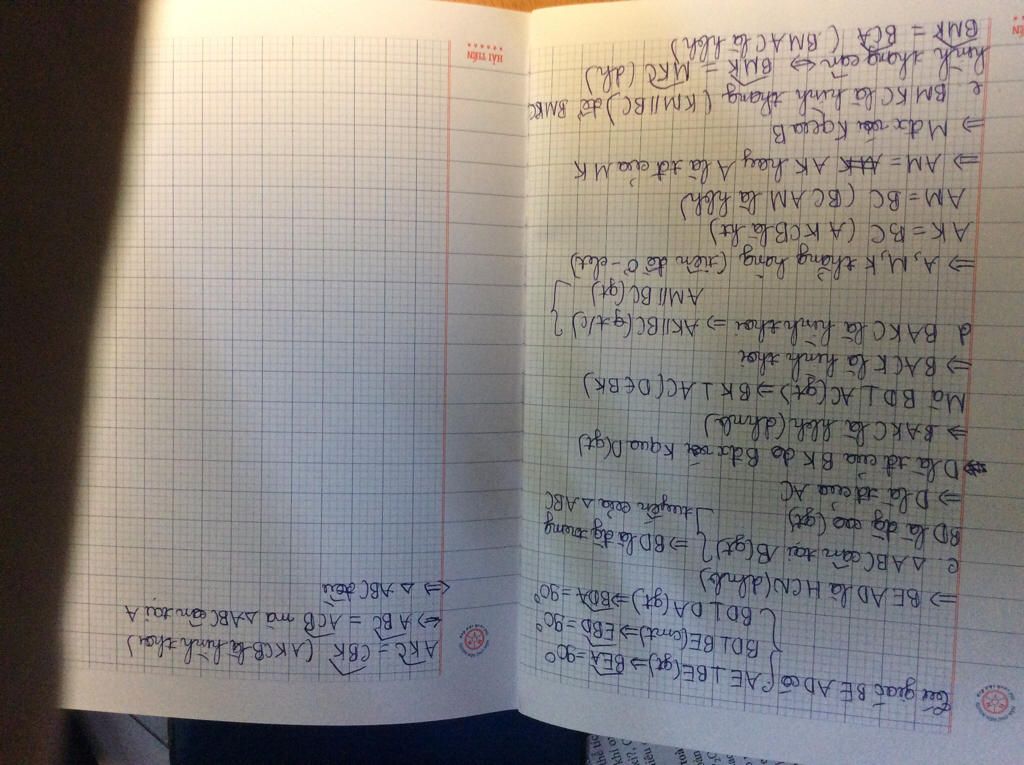 Tứ giác BEAD có { AE ⊥ BE (gt) ⇒ BEA = 90°
BD ⊥ BE (cmt) ⇒ EBD = 90°
BD ⊥ DA (gt) ⇒ BDA = 90°
⇒ BEAD là HCN (dhnb)
c. ΔABC cân tại B (gt) } ⇒ BD là đg trung
BD là đg cao (gt) tuyến của ΔABC
⇒ D là tđ của AC
D là tđ của BK do B đx với K qua D (gt)
⇒ BAKC là hbh (dhnb)
Mà BD ⊥ AC (gt) ⇒ BK ⊥ AC (D ∈ BK)
⇒ BACK là hình thoi
d. BAKC là hình thoi ⇒ AK // BC (gt t/c) }
AM // BC (gt)
⇒ A, M, K thẳng hàng (tiên đề Ơ-clet)
AK = BC (AKCB là ht)
AM = BC (BCAM là hbh)
⇒ AM = AK hay A là tđ của MK
⇒ M đx với K qua B
e. BMKC là hình thang (KM // BC) để BMKC
hình thang cân ⇔ BMK = MKC (dh)
BMK = BCA (BMAC là hbh)
HẢI TIẾN
AKC = CBK (AKCB là hình thoi)
⇔ ABC = ACB mà ΔABC cân tại A
⇔ ΔABC đều